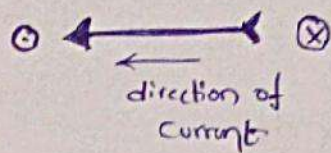 direction of
current